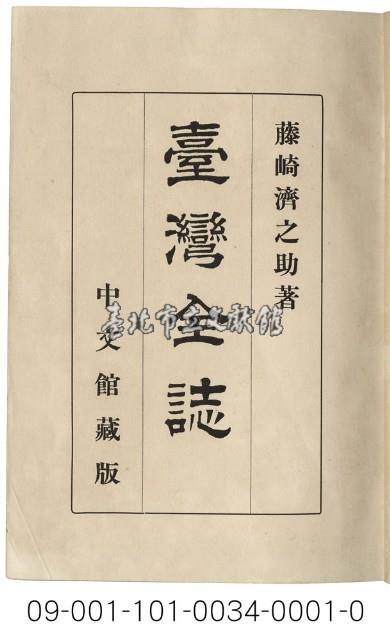 藤崎濟之助著
臺灣全誌
中文館藏版
臺北市立文獻館
09-001-101-0034-0001-0